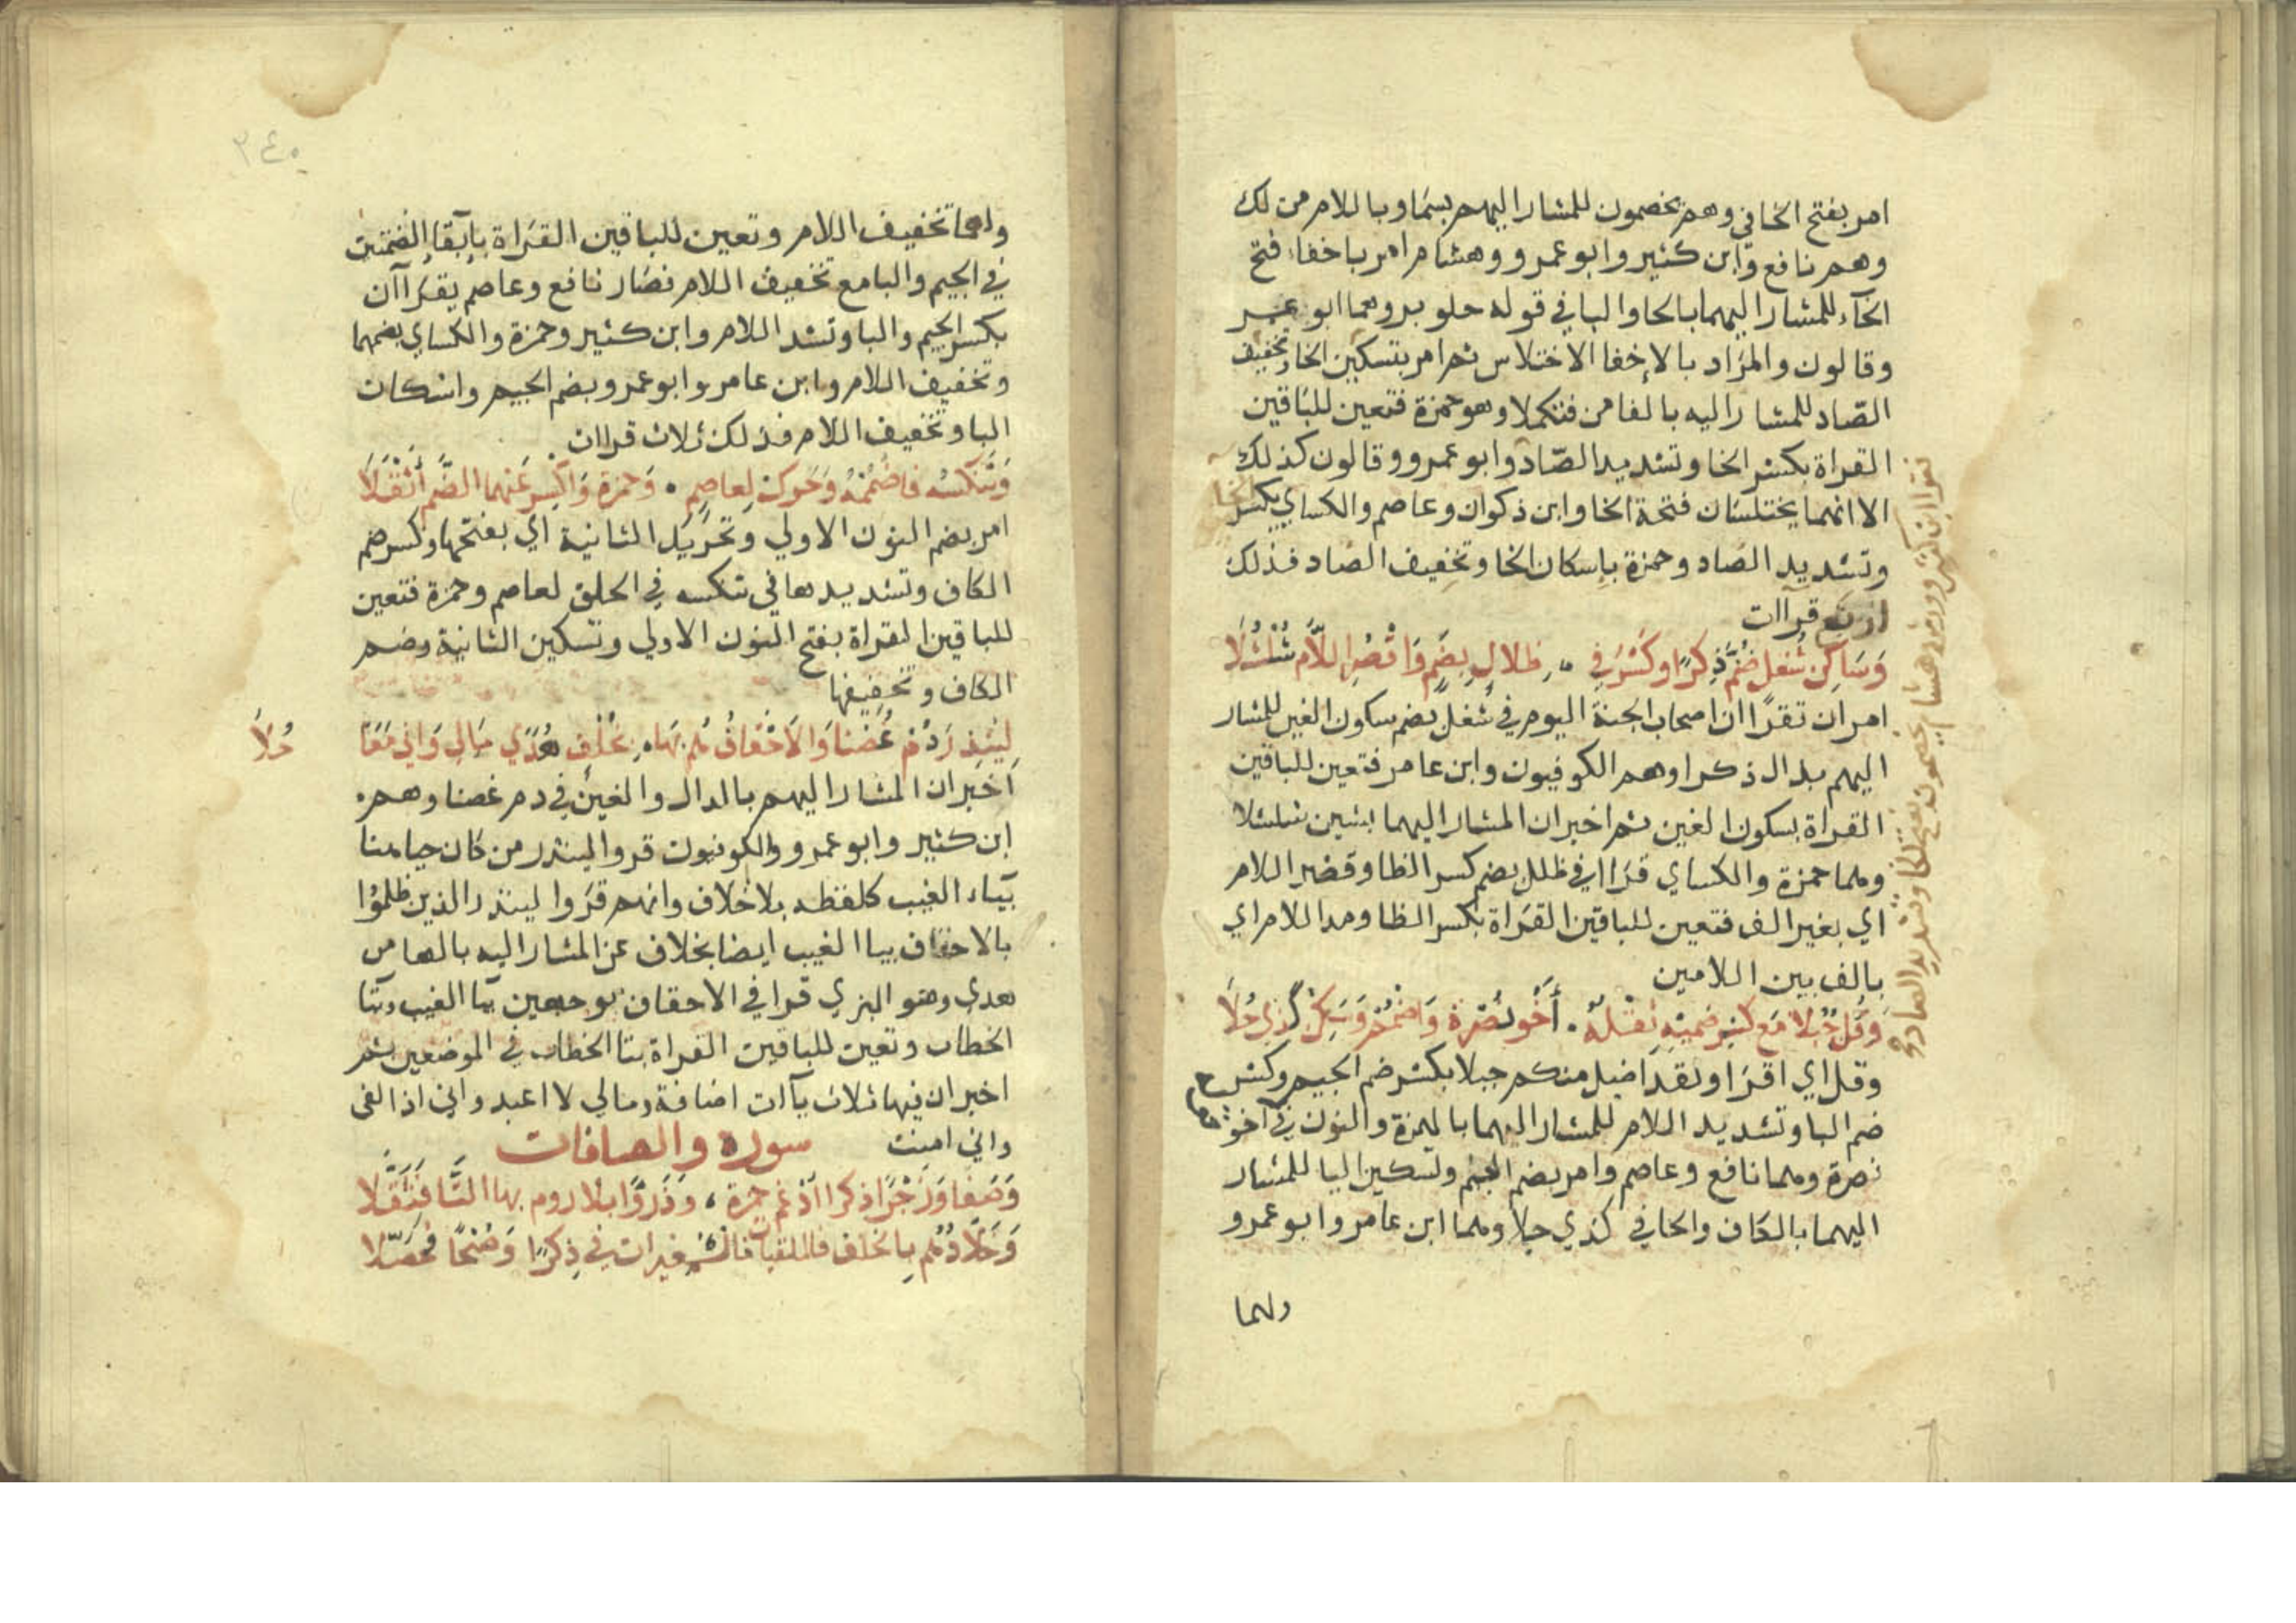 امر بفتح الخا في وهم يخصمون للمشار اليهم بسما وباللام من لك
وهم نافع وابن كثير وابو عمرو وهشام امر باخفاء فتح
الخاء للمشار اليهما بالحا والبا في قوله حلو بر وهما ابو عمر
وقالون والمراد بالاخفا الاختلاس ثم امر بتسكين الخا وتخفيف
الصاد للمشار اليه بالفا من فتكملا وهو حمزة فتعين للباقين
القراة بكسر الخا وتشديد الصاد وابو عمرو وقالون كذلك
الا انهما يختلسان فتحة الخا وابن ذكوان وعاصم والكساي بكسر الخا
وتشديد الصاد وحمزة باسكان الخا وتخفيف الصاد فذلك
اربع قراات
وَسَاكِن شُغل ضُمَّ ذِكرًا وكَسْرُ في ظلالٍ بِضَمٍ وَاقْصُرِ اللَّام شُلْشُلَا
امر ان تقرا ان اصحاب الجنة اليوم في شغل بضم سكون الغين للمشار
اليهم بذال ذكرا وهم الكوفيون وابن عامر فتعين للباقين
القراة بسكون الغين ثم اخبر ان المشار اليهما بشين شلشلا
وهما حمزة والكساي قرا في ظلل بضم كسر الظا وقصر اللام
اي بغير الف فتعين للباقين القراة بكسر الظا ومد اللام اي
بالف بين اللامين
وَقُل جُبُلا مَع كسرِ ضميْهِ ثقلهُ أَخُو نُصْرة وَاضْمُمْ وَسَكِّنْ كَذِي حُلَا
وقل اي اقرا ولقد اضل منكم جبلا بكسر ضم الجيم وكسر
ضم البا وتشديد اللام للمشار اليهما بالهمزة والنون في اخو
نصرة وهما نافع وعاصم وامر بضم الجيم وتسكين البا للمشار
اليهما بالكاف والحا في كذي حلا وهما ابن عامر وابو عمرو
ولهما
تقرا ابن كثير وورش وهشام يخصمون بفتح الخا وتشديد الصاد
٢٤٠
ولهما تخفيف اللام وتعين للباقين القراة بابقا الضمتين
في الجيم والبا مع تخفيف اللام فصار نافع وعاصم يقراآن
بكسر الجيم والبا وتشد اللام وابن كثير وحمزة والكساي بضمهما
وتخفيف اللام وابن عامر وابو عمرو بضم الجيم واسكان
البا وتخفيف اللام فذلك ثلاث قراات
وَنَنكُسْهُ فاضْمُمْهُ وَحَرك لِعاصِمٍ وَحمزة وَاكسِر عَنهما الضَّم أثْقَلَا
امر بضم النون الاولي وتحريك الثانية اي بفتحها وكسر ضم
الكاف وتشديدها في ننكسه في الخلق لعاصم وحمزة فتعين
للباقين القراة بفتح النون الاولي وتسكين الثانية وضم
الكاف وتخفيفها
لِيُنذِرَ دُمْ غُصنا وَالاَحْقَافُ هُم بهَا بخُلْفٍ هُدًي مَالِي وَاني مَعًا حُلَا
اخبر ان المشار اليهم بالدال والغين في دم غصنا وهم
ابن كثير وابو عمرو والكوفيون قروا لينذر من كان حيا هنا
بياء الغيب كلفظه بلا خلاف وانهم قروا لينذر الذين ظلموا
بالاحقاف بيا الغيب ايضا بخلاف عن المشار اليه بالها من
هدي وهو البزي قرا في الاحقاف بوجهين يا الغيب وتا
الخطاب وتعين للباقين القراة بتا الخطاب في الموضعين ثم
اخبر ان فيها ثلاث ياآت اضافة ومالي لا اعبد واني اذا لفي
واني امنت سورة والصافات
وَصَفا وزَجْرًا ذكرا ادْغم حمزة وَذَروًا بلا روم بها التَّا فثَقَّلا
وَخَلَّادُهُم بِالخلف فالملقيات فالمغيرات في ذِكْرًا وَصُبْحًا فحَصِّلا